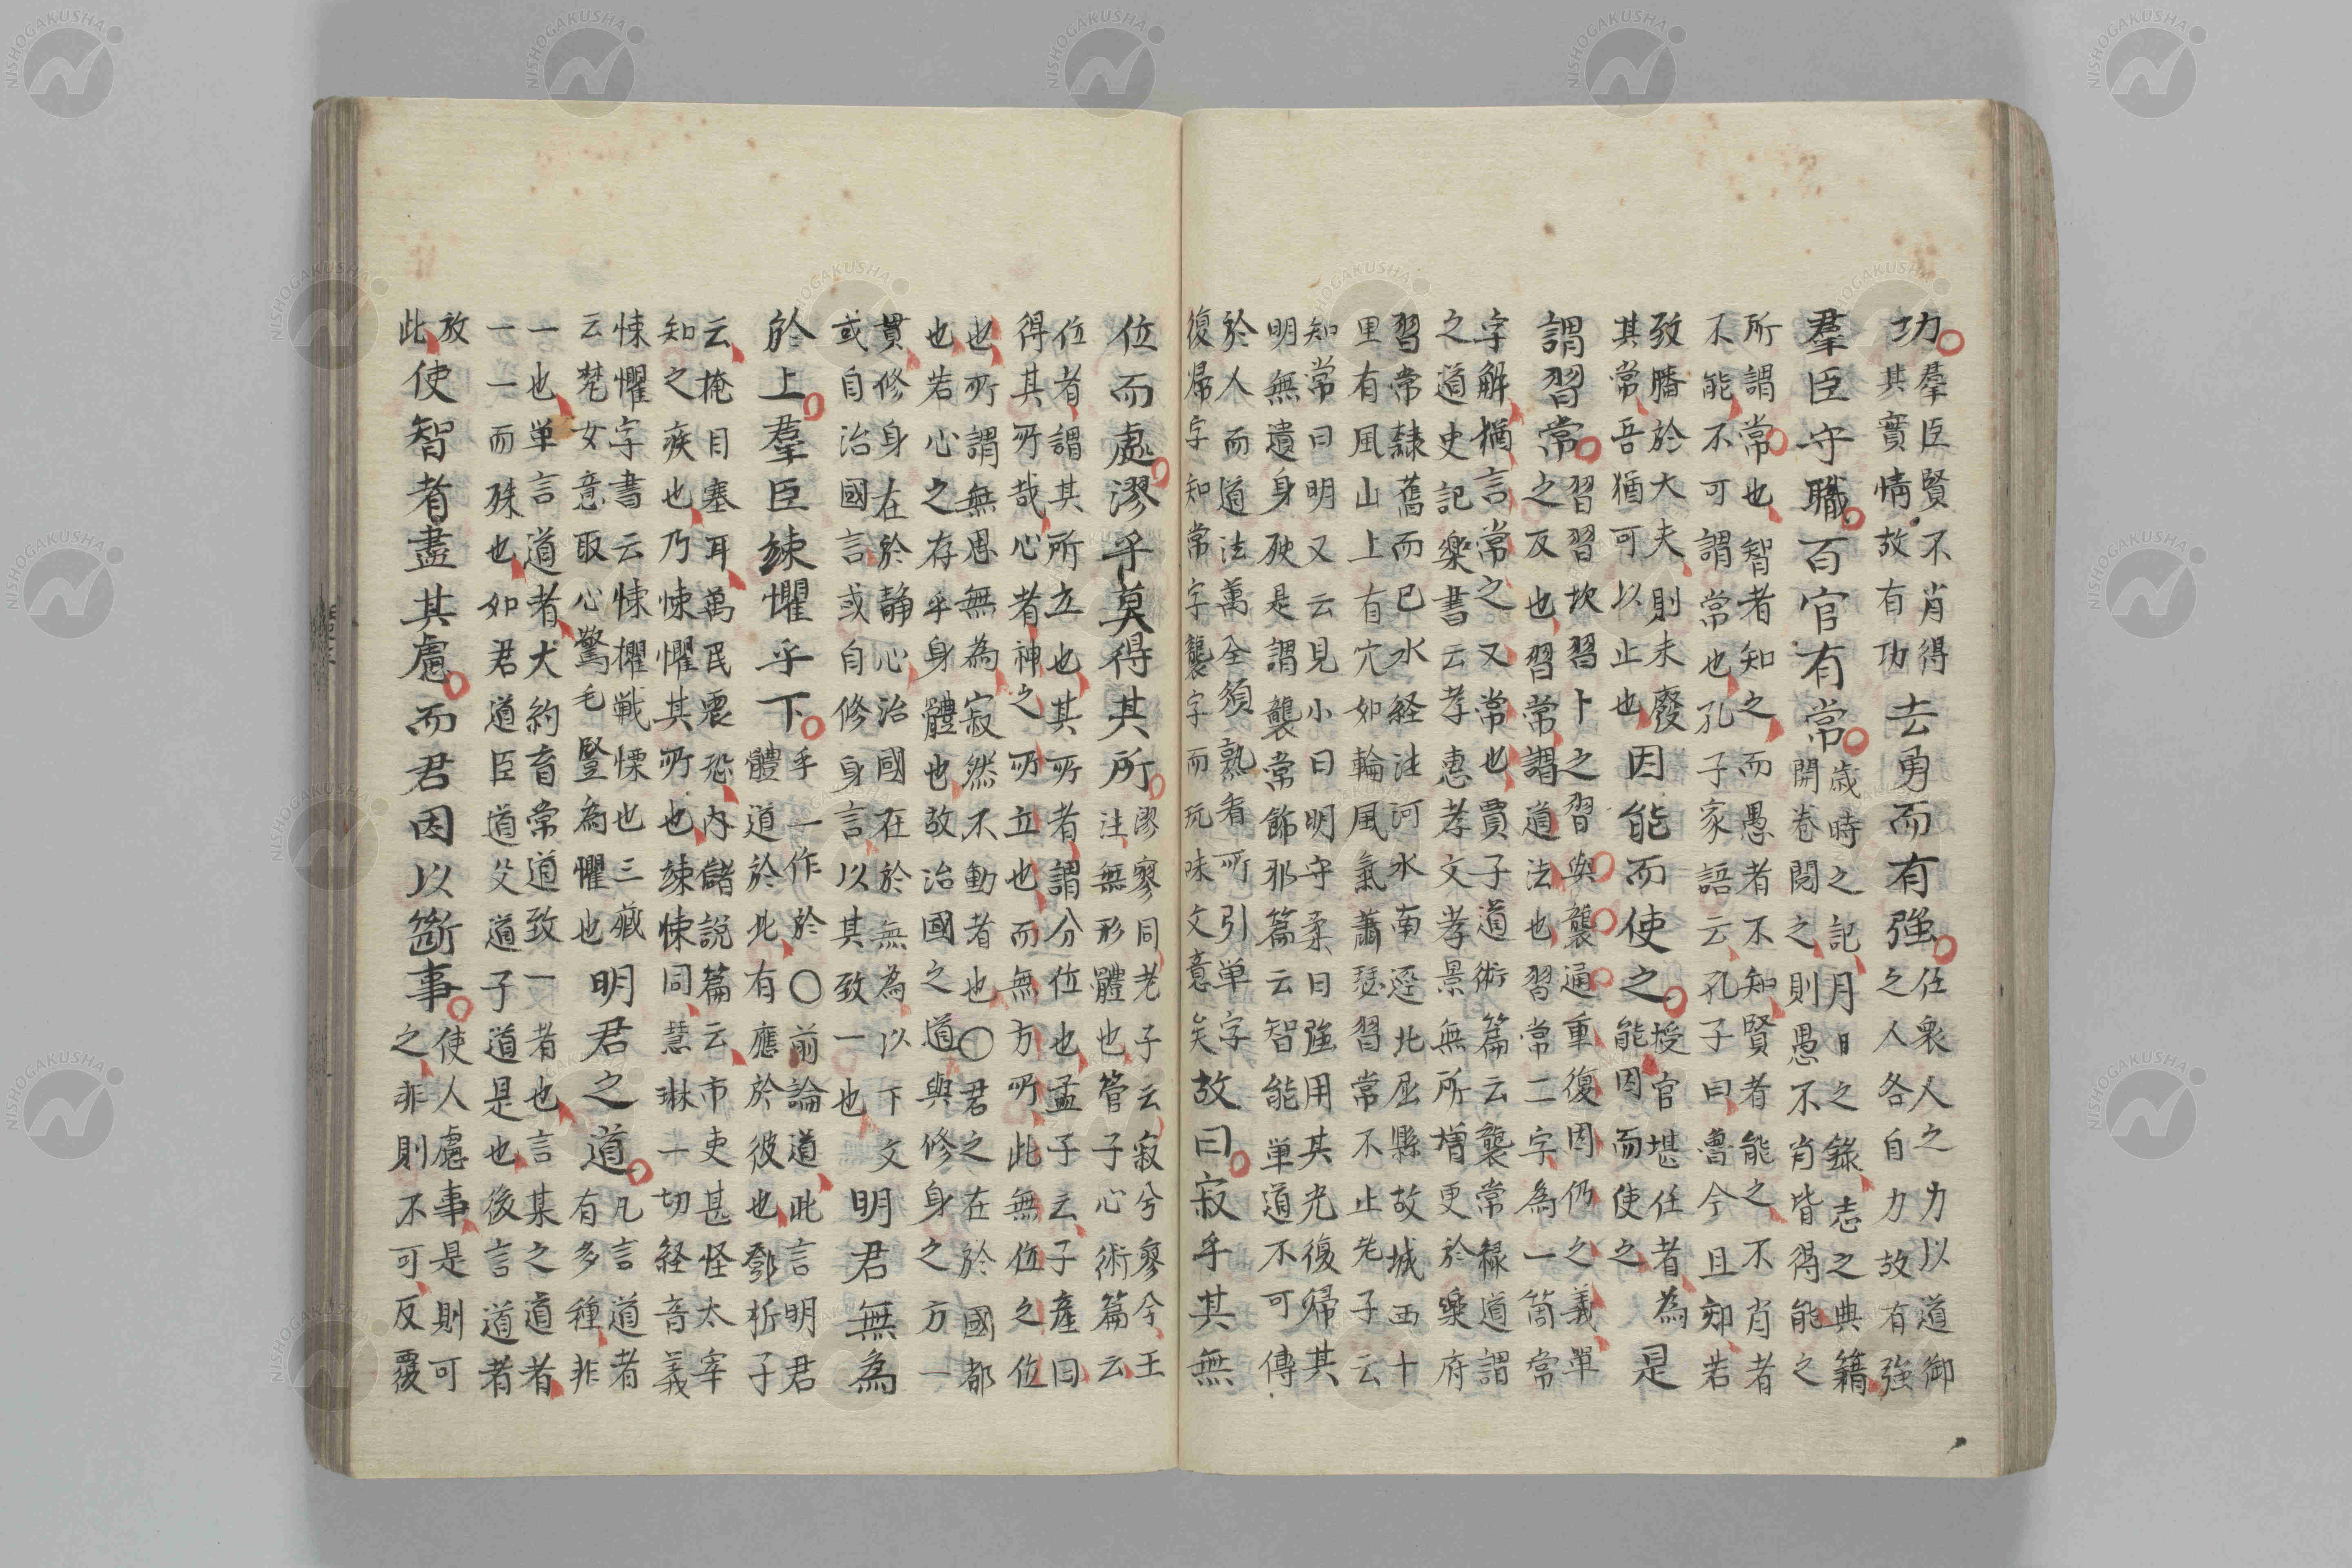 功
羣臣賢不肖得
其實情故有功
去勇而有強
任衆人之力以道御
之人各自力故有強
羣臣守職百官有常
歲時之記月日之錄志之典籍
開卷閱之則愚不肖皆得能之
所謂常也智者知之而愚者不知賢者能之不肖者
不能不可謂常也孔子家語云孔子曰魯今且郊若
致膰於大夫則未廢
其常吾猶可以止也
因能而使之
授官堪任者為
能因而使之
是
謂習常
習習坎習卜之習與襲通重復因仍之義單
之反也習常謂道法也習常二字為一箇常
字解猶言常之又常也賈子道術篇云襲常緣道謂
之道史記樂書云孝惠孝文孝景無所增更於樂府
習常隸舊而已水経注河水南逕北屈縣故城西十
里有風山上有穴如輪風氣蕭瑟習常不止老子云
知常曰明又云見小曰明守柔曰強用其光復帰其
明無遺身殃是謂襲常飾邪篇云智能単道不可傳
於人而道法萬全須熟看所引単字
復帰字知常字襲字而玩味文意矣
故曰寂乎其無
位而處漻乎莫得其所
漻寥同老子云寂兮寥兮王
注無形體也管子心術篇云
位者謂其所立也其所者謂分位也孟子云子產曰
得其所哉心者神之所立也而無方所此無位之位
也所謂無思無為寂然不動者也○君之在於國都
也若心之存乎身體也故治國之道與修身之方一
貫修身在於静心治國在於無為以下文
或自治國言或自修身言以其致一也
明君無為
於上羣臣竦懼乎下
乎一作於○前論道此言明君
體道於此有應於彼也鄧析子
云掩目塞耳萬民震恐内儲説篇云市吏甚怪太宰
知之疾也乃悚懼其所也竦悚同慧琳一切経音義
悚懼字書云悚懼戦慄也三蔵
云梵女意取心驚毛豎為懼也
明君之道
凡言道者
有多種非
一也単言道者大約育常道致一者也言某之道者
一一而殊也如君道臣道父道子道是也後言道者
放
此
使智者盡其慮而君因以斷事
使人慮事是則可
之非則不可反覆